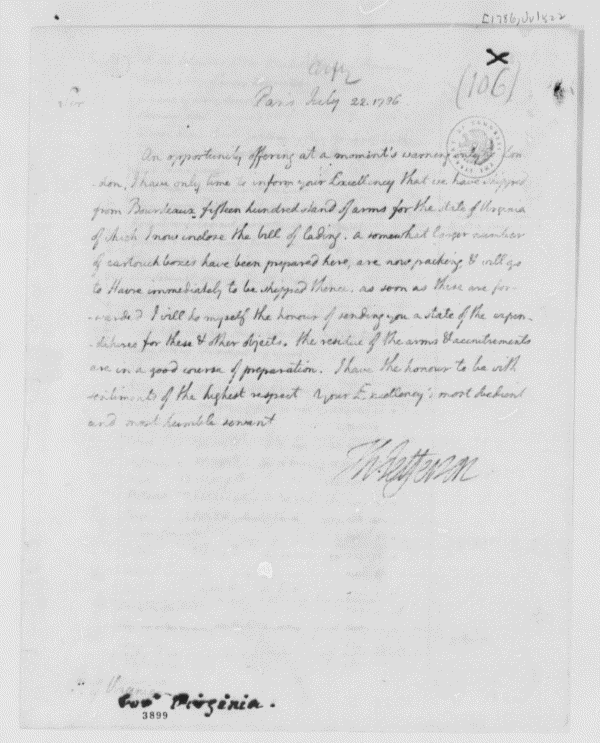 [1786, Jul 22
Copy
(106)
Sir
Paris July 22. 1786
An opportunity offering at a moment's warning only to Lon-
-don, I have only time to inform your Excellency that we have shipped
from Bourdeaux fifteen hundred stand of arms for the state of Virginia
of which I now inclose the bill of lading. a somewhat larger number
of cartouch boxes have been prepared here, are now packing & will go
to Havre immediately to be shipped thence. as soon as these are for-
-warded I will do myself the honour of sending you a state of the expen-
-ditures for these & other objects. the residue of the arms & accoutrements
are in a good course of preparation. I have the honour to be with
sentiments of the highest respect Your Excellency's most obedient
and most humble servant
Th: Jefferson
Virginia
Govr. Virginia.
3899